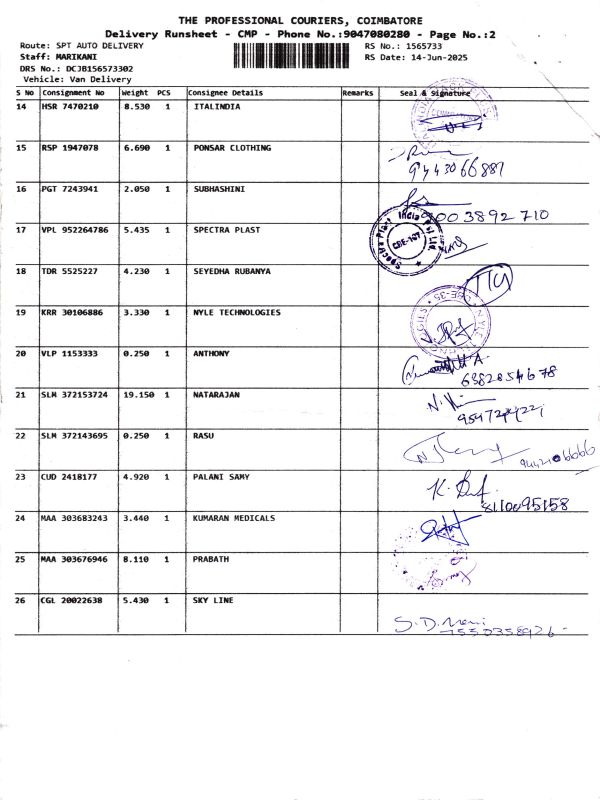 THE PROFESSIONAL COURIERS, COIMBATORE
Delivery Runsheet - CMP - Phone No.:9047080280 - Page No.:2
Route: SPT AUTO DELIVERY RS No.: 1565733
Staff: MARIKANI RS Date: 14-Jun-2025
DRS No.: DCJB156573302
Vehicle: Van Delivery
S No Consignment No Weight PCS Consignee Details Remarks Seal & Signature
14 HSR 7470210 8.530 1 ITALINDIA
15 RSP 1947078 6.690 1 PONSAR CLOTHING
9443066887
16 PGT 7243941 2.050 1 SUBHASHINI
003892710
17 VPL 952264786 5.435 1 SPECTRA PLAST
Spectra Plast India Pvt Ltd. CBE-107
18 TDR 5525227 4.230 1 SEYEDHA RUBANYA
19 KRR 30106886 3.330 1 NYLE TECHNOLOGIES
CBE-35
20 VLP 1153333 0.250 1 ANTHONY
6382854678
21 SLM 372153724 19.150 1 NATARAJAN
22 SLM 372143695 0.250 1 RASU
23 CUD 2418177 4.920 1 PALANI SAMY
8110095158
24 MAA 303683243 3.440 1 KUMARAN MEDICALS
25 MAA 303676946 8.110 1 PRABATH
26 CGL 20022638 5.430 1 SKY LINE
S.D.Mani
7550358926